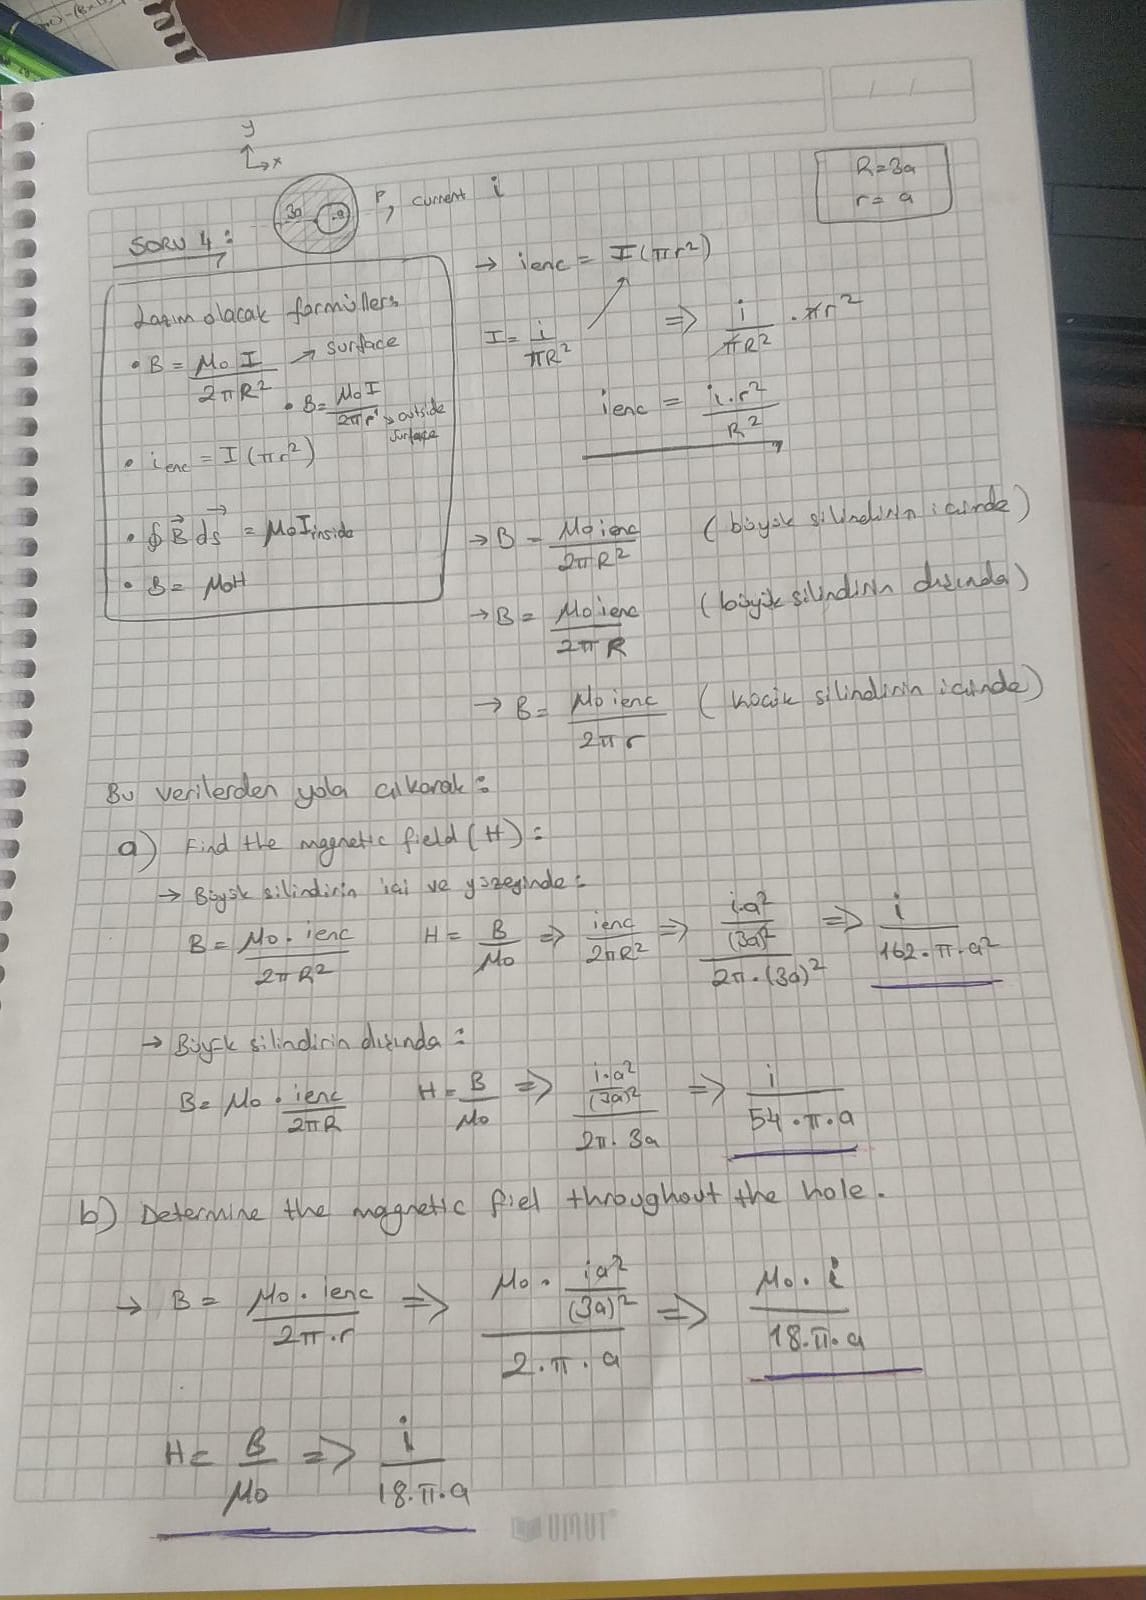 y
x
3a a P, current i
R=3a
r= a
SORU 4:
Lazım olacak formüller:
• B = μ₀ I / 2πR² → surface
• B = μ₀ I / 2πr → outside surface
• i_enc = I (πr²)
• ∮ B⃗ ds⃗ = μ₀ I_inside
• B = μ₀H
→ i_enc = I (πr²)
I = i / πR² => i / πR² . πr²
i_enc = i.r² / R²
→ B = μ₀ i_enc / 2πR² (büyük silindirin içinde)
→ B = μ₀ i_enc / 2πR (büyük silindirin dışında)
→ B = μ₀ i_enc / 2πr (küçük silindirin içinde)
Bu verilerden yola çıkarak:
a) Find the magnetic field (H):
→ Büyük silindirin içi ve yüzeyinde:
B = μ₀ . i_enc / 2πR² H = B / μ₀ => i_enc / 2πR² => (i.a² / (3a)²) / 2π.(3a)² => i / 162.π.a²
→ Büyük silindirin dışında:
B = μ₀ . i_enc / 2πR H = B / μ₀ => (i.a² / (3a)²) / 2π.3a => i / 54.π.a
b) Determine the magnetic fiel throughout the hole.
→ B = μ₀ . i_enc / 2π.r => μ₀ . (ia² / (3a)²) / 2.π.a => μ₀ . i / 18.π.a
H = B / μ₀ => i / 18.π.a
UMUT